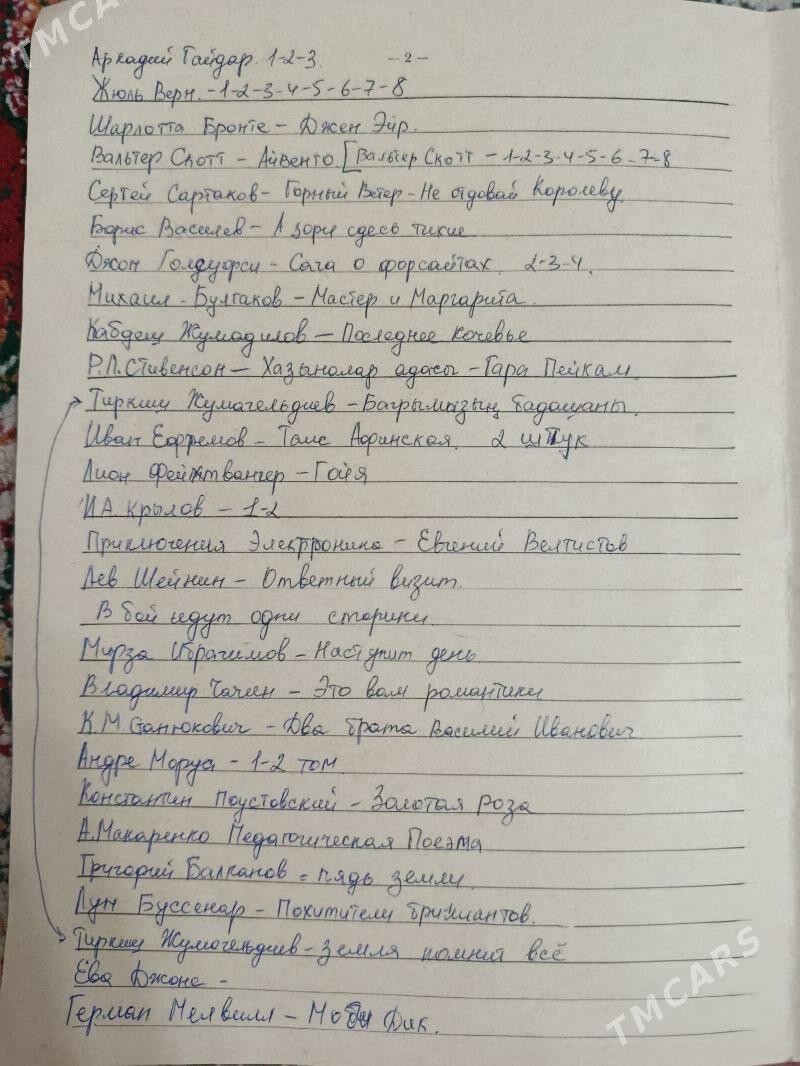 TMCARS
Аркадий Гайдар. 1-2-3. -2-
Жюль Верн. -1-2-3-4-5-6-7-8
Шарлотта Бронте - Джен Эйр.
Вальтер Скотт - Айвенго [Вальтер Скотт - 1-2-3-4-5-6-7-8
Сергей Сартаков - Горный Ветер - Не отдовай Королеву
Борис Василев - А зори сдесь тихие
Джон Голсуорси - Сага о форсайтах. 2-3-4.
Михаил - Булгаков - Мастер и Маргарита.
Кабдеш Жумадилов - Последнее кочевье
Р.Л. Стивенсон - Хазыналар адасы - Гара Пейкам.
Тиркиш Жумагельдиев - Багрымызың бадашаны.
Иван Ефремов - Таис Афинская. 2 штук
Лион Фейхтвангер - Гойя
И.А. Крылов - 1-2
Приключения Электроника - Евгений Велтистов
Лев Шейнин - Ответный визит.
В бой идут одни старики.
Мирза Ибрагимов - Наступит день.
Владимир Чачин - Это вам романтики
К.М Станюкович - Два брата Василий Иванович
Андре Моруа - 1-2 том.
Константин Паустовский - Золотая роза
А.Макаренко Педагогическая Поэма
Григорий Балканов = пядь земли.
Луи Буссенар - Похитители бриллиантов.
Тиркиш Жумагельдиев - Земля помнит всё
Ева Джонс -
Герман Мелвилл - Моби Дик.
TMCARS